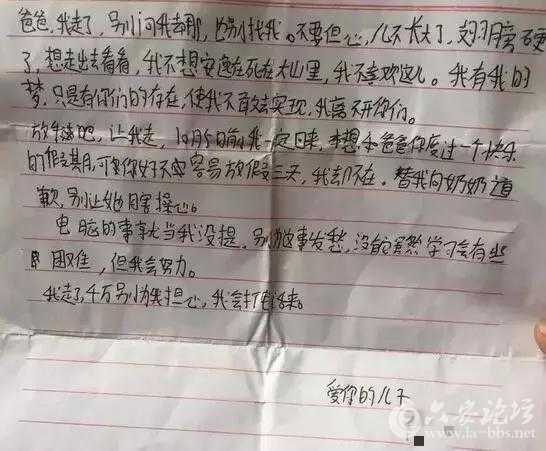 爸爸,我走了,别问我去哪,也别找我。不要但心,儿子长大了,翅膀硬
了,想走出去看看,我不想安逸在死在大山里,我不喜欢这儿。我有我的
梦,只是有你们的存在,使我不敢去实现,我离不开你们。
放手吧,让我走,10月5日前我一定回来,本想和爸爸你度过一个快乐
的假期,可是你好不容易放假三天,我却不在。替我向奶奶道
歉,别让她瞎操心。
电脑的事就当我没提,别为这事发愁,没的虽然学习会有些
困难,但我会努力。
我走了,千万别为我担心,我会打电话来。
爱你的儿子
六安论坛
www.la-bbs.net